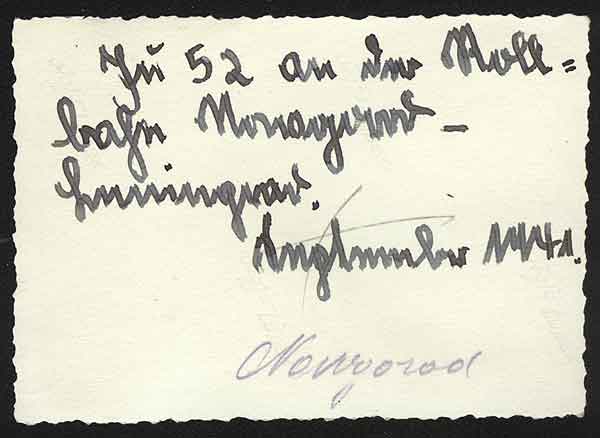 Ju 52 an der Roll=
bahn Nowogorod –
Leningrad.
September 1941.
Nowgorod